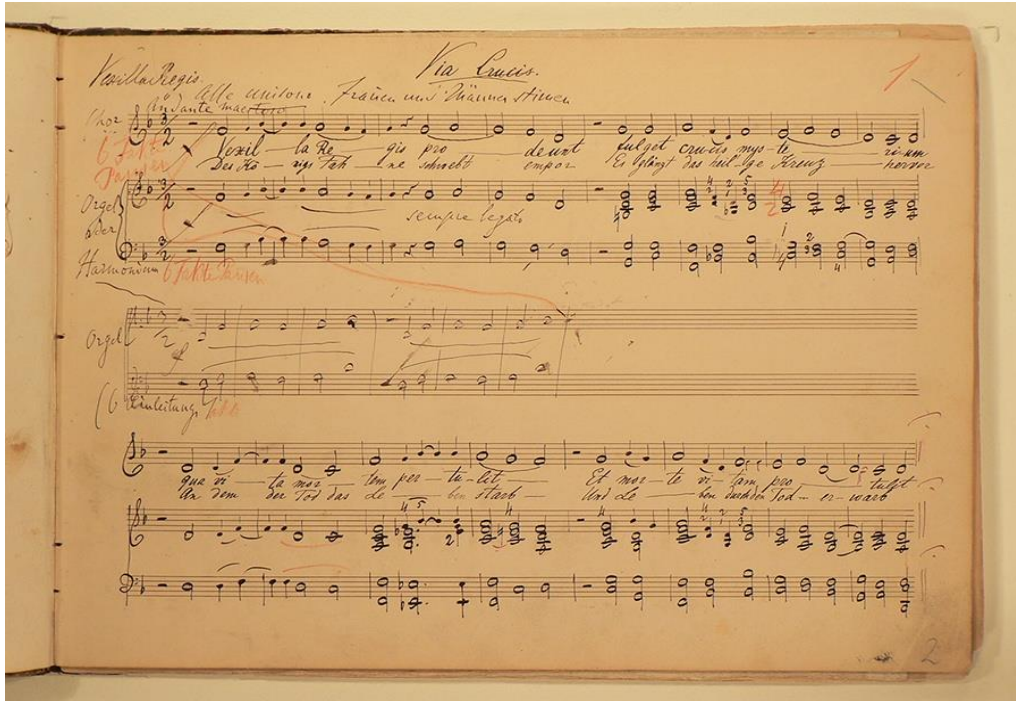 Via Crucis.
1
Vexilla Regis.
Alle unisono. Frauen und Männerstimmen
Andante maestoso
Chor
3
2
Vexil - la Re - gis pro - deunt fulget crucis myste - rium
Des Kö - nigs Fah - ne schwebt empor Es glänzt das heil - ge Kreuz - hervor
6 Takte
Orgel
oder
Harmonium
3
2
sempre legato
4
2
3
2
6 Takte Pausen
Orgel
3
2
(6 Einleitungs
qua vi - ta mor - tem per - tu - lit - Et mor - te vi - tam pro - tulit
An dem der Tod das Le - ben starb Und Le - ben durch den Tod - er - warb
2